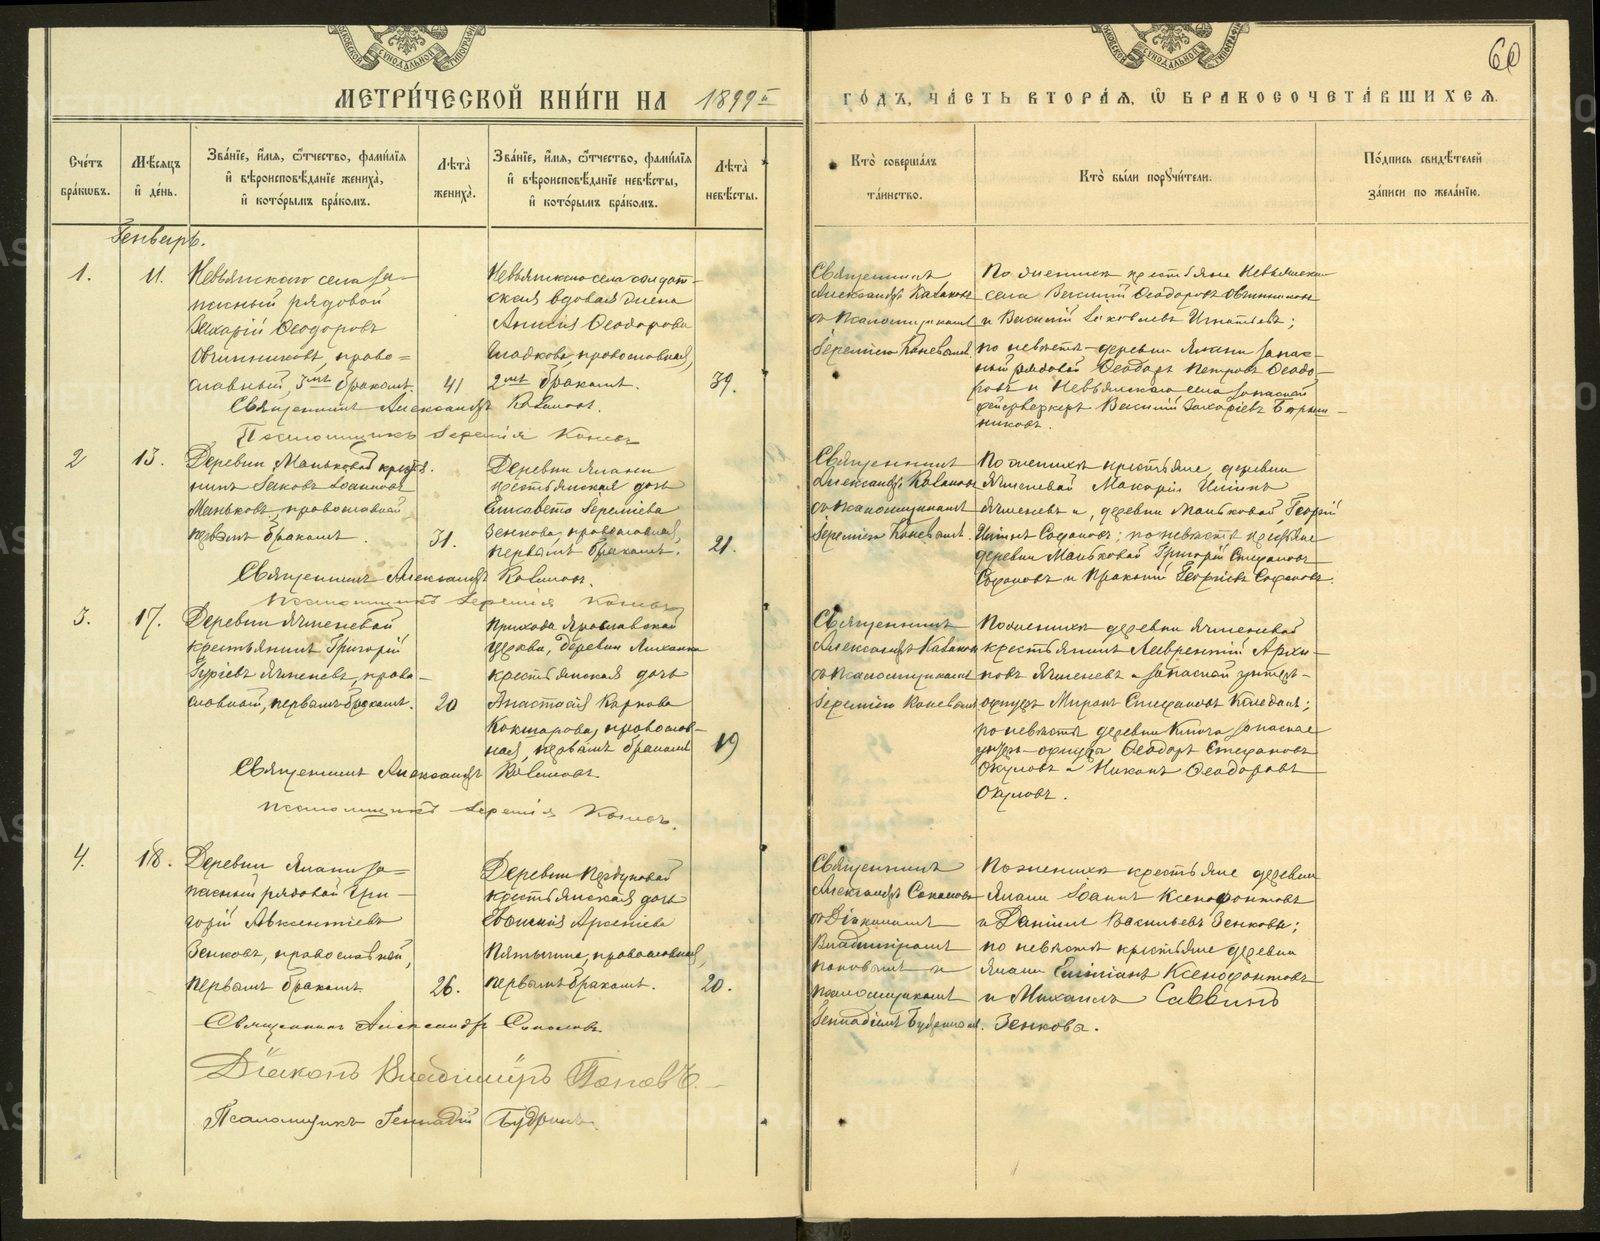 МЕТРИ́ЧЕСКОЙ КНИ́ГИ НА 1899й
ГО́ДЪ, ЧА́СТЬ ВТОРА́Я, Ѡ҆ БРАКОСОЧЕТА́ВШИХСЯ.
60
Сче́тъ бра́кѡвъ.
Мѣ́сяцъ и҆ де́нь.
Зва́нїе, и҆́мя, ѻ҆́тчество, фами́лїя и҆ вѣроисповѣ́данїе жениха̀, и҆ кото́рымъ бра́комъ.
Лѣ́та жениха̀.
Зва́нїе, и҆́мя, ѻ҆́тчество, фами́лїя и҆ вѣроисповѣ́данїе невѣ́сты, и҆ кото́рымъ бра́комъ.
Лѣ́та невѣ́сты.
Кто̀ соверша́лъ та́инство.
Кто̀ бы́ли порꙋчи́тели.
По́дпись свидѣ́телей за́писи по жела́нїю.
Генварь.
1.
11.
Невьянскаго села за-
пасный рядовой
Захарій Ѳеодоровъ
Овчинниковъ, право=
славный, 3мъ бракомъ.
41
Невьянскаго села солдат-
ская вдовая жена
Анисія Ѳеодорова
Гладкова, православная,
2мъ бракомъ.
39.
Священникъ
Александръ
съ псаломщикомъ
Іереміею Коневымъ.
По женихѣ крестьяне Невьянскаго
села Василій Ѳеодоровъ Овчинниковъ
и Василій Іаковлевъ Игнатьевъ;
по невѣстѣ – деревни Ялани запас-
ный рядовой Ѳеодоръ Петровъ Ѳеодо-
ровъ и Невьянскаго села запасной
фейерверкеръ Василій Захаріевъ
никовъ.
Священникъ Александръ
Псаломщикъ Іеремія Коневъ
2
13.
Деревни Маньковой
нинъ Іаковъ Іоанновъ
Маньковъ, православный
первымъ бракомъ.
31.
Деревни Ялани
крестьянская дочь
Елисавета Іереміева
Зенкова, православная,
первымъ бракомъ.
21.
Священникъ
Александръ
съ псаломщикомъ
Іереміею Коневымъ
По женихѣ крестьяне, деревни
Ячменевой Макарій
Ячменевъ и, деревни Маньковой Георгій
Софоновъ; по невѣстѣ крестьяне
деревни Маньковой Григорій Стефановъ
Софоновъ и Георгіевъ Софоновъ.
Священникъ Александръ
Псаломщикъ Іеремія Коневъ
3.
17.
Деревни Ячменевой
крестьянинъ Григорій
Гуріевъ Ячменевъ, право-
славный, первымъ бракомъ.
20
Прихода Ярославской
церкви, деревни
крестьянская дочь
Анастасія Карпова
Кокшарова, православ-
ная, первымъ бракомъ
19
Священникъ
Александръ
съ псаломщикомъ
Іереміею Коневымъ
По женихѣ деревни Ячменевой
крестьянинъ Лаврентій Архи-
повъ Ячменевъ и запасной унтеръ-
офицеръ Миронъ Стефановъ
по невѣстѣ деревни запасные
унтеръ-офицеры Ѳеодоръ Стефановъ
Окуловъ и Никонъ Ѳеодоровъ
Окуловъ.
Священникъ Александръ
Псаломщикъ Іеремія Коневъ.
4.
18.
Деревни Ялани за-
пасный рядовой Гри-
горій Авксентіевъ
Зенковъ, православный,
первымъ бракомъ.
26.
Деревни
крестьянская дочь
Арсеніева
православная,
первымъ бракомъ.
20.
Священникъ
Александръ Соколовъ
съ Діакономъ
Владиміромъ
Поповымъ и
псаломщикомъ
Геннадіемъ Будринымъ.
По женихѣ крестьяне деревни
Ялани Іоаннъ Ксенофонтовъ
и Даніилъ Васильевъ Зенковы;
по невѣстѣ крестьяне деревни
Ялани Емиліанъ Ксенофонтовъ
и Михаилъ Саввинъ
Зенкова.
Священникъ Александръ Соколовъ
Діаконъ Владиміръ Поповъ.
Псаломщикъ Геннадій Будринъ.
METRIKI.GASO-URAL.RU